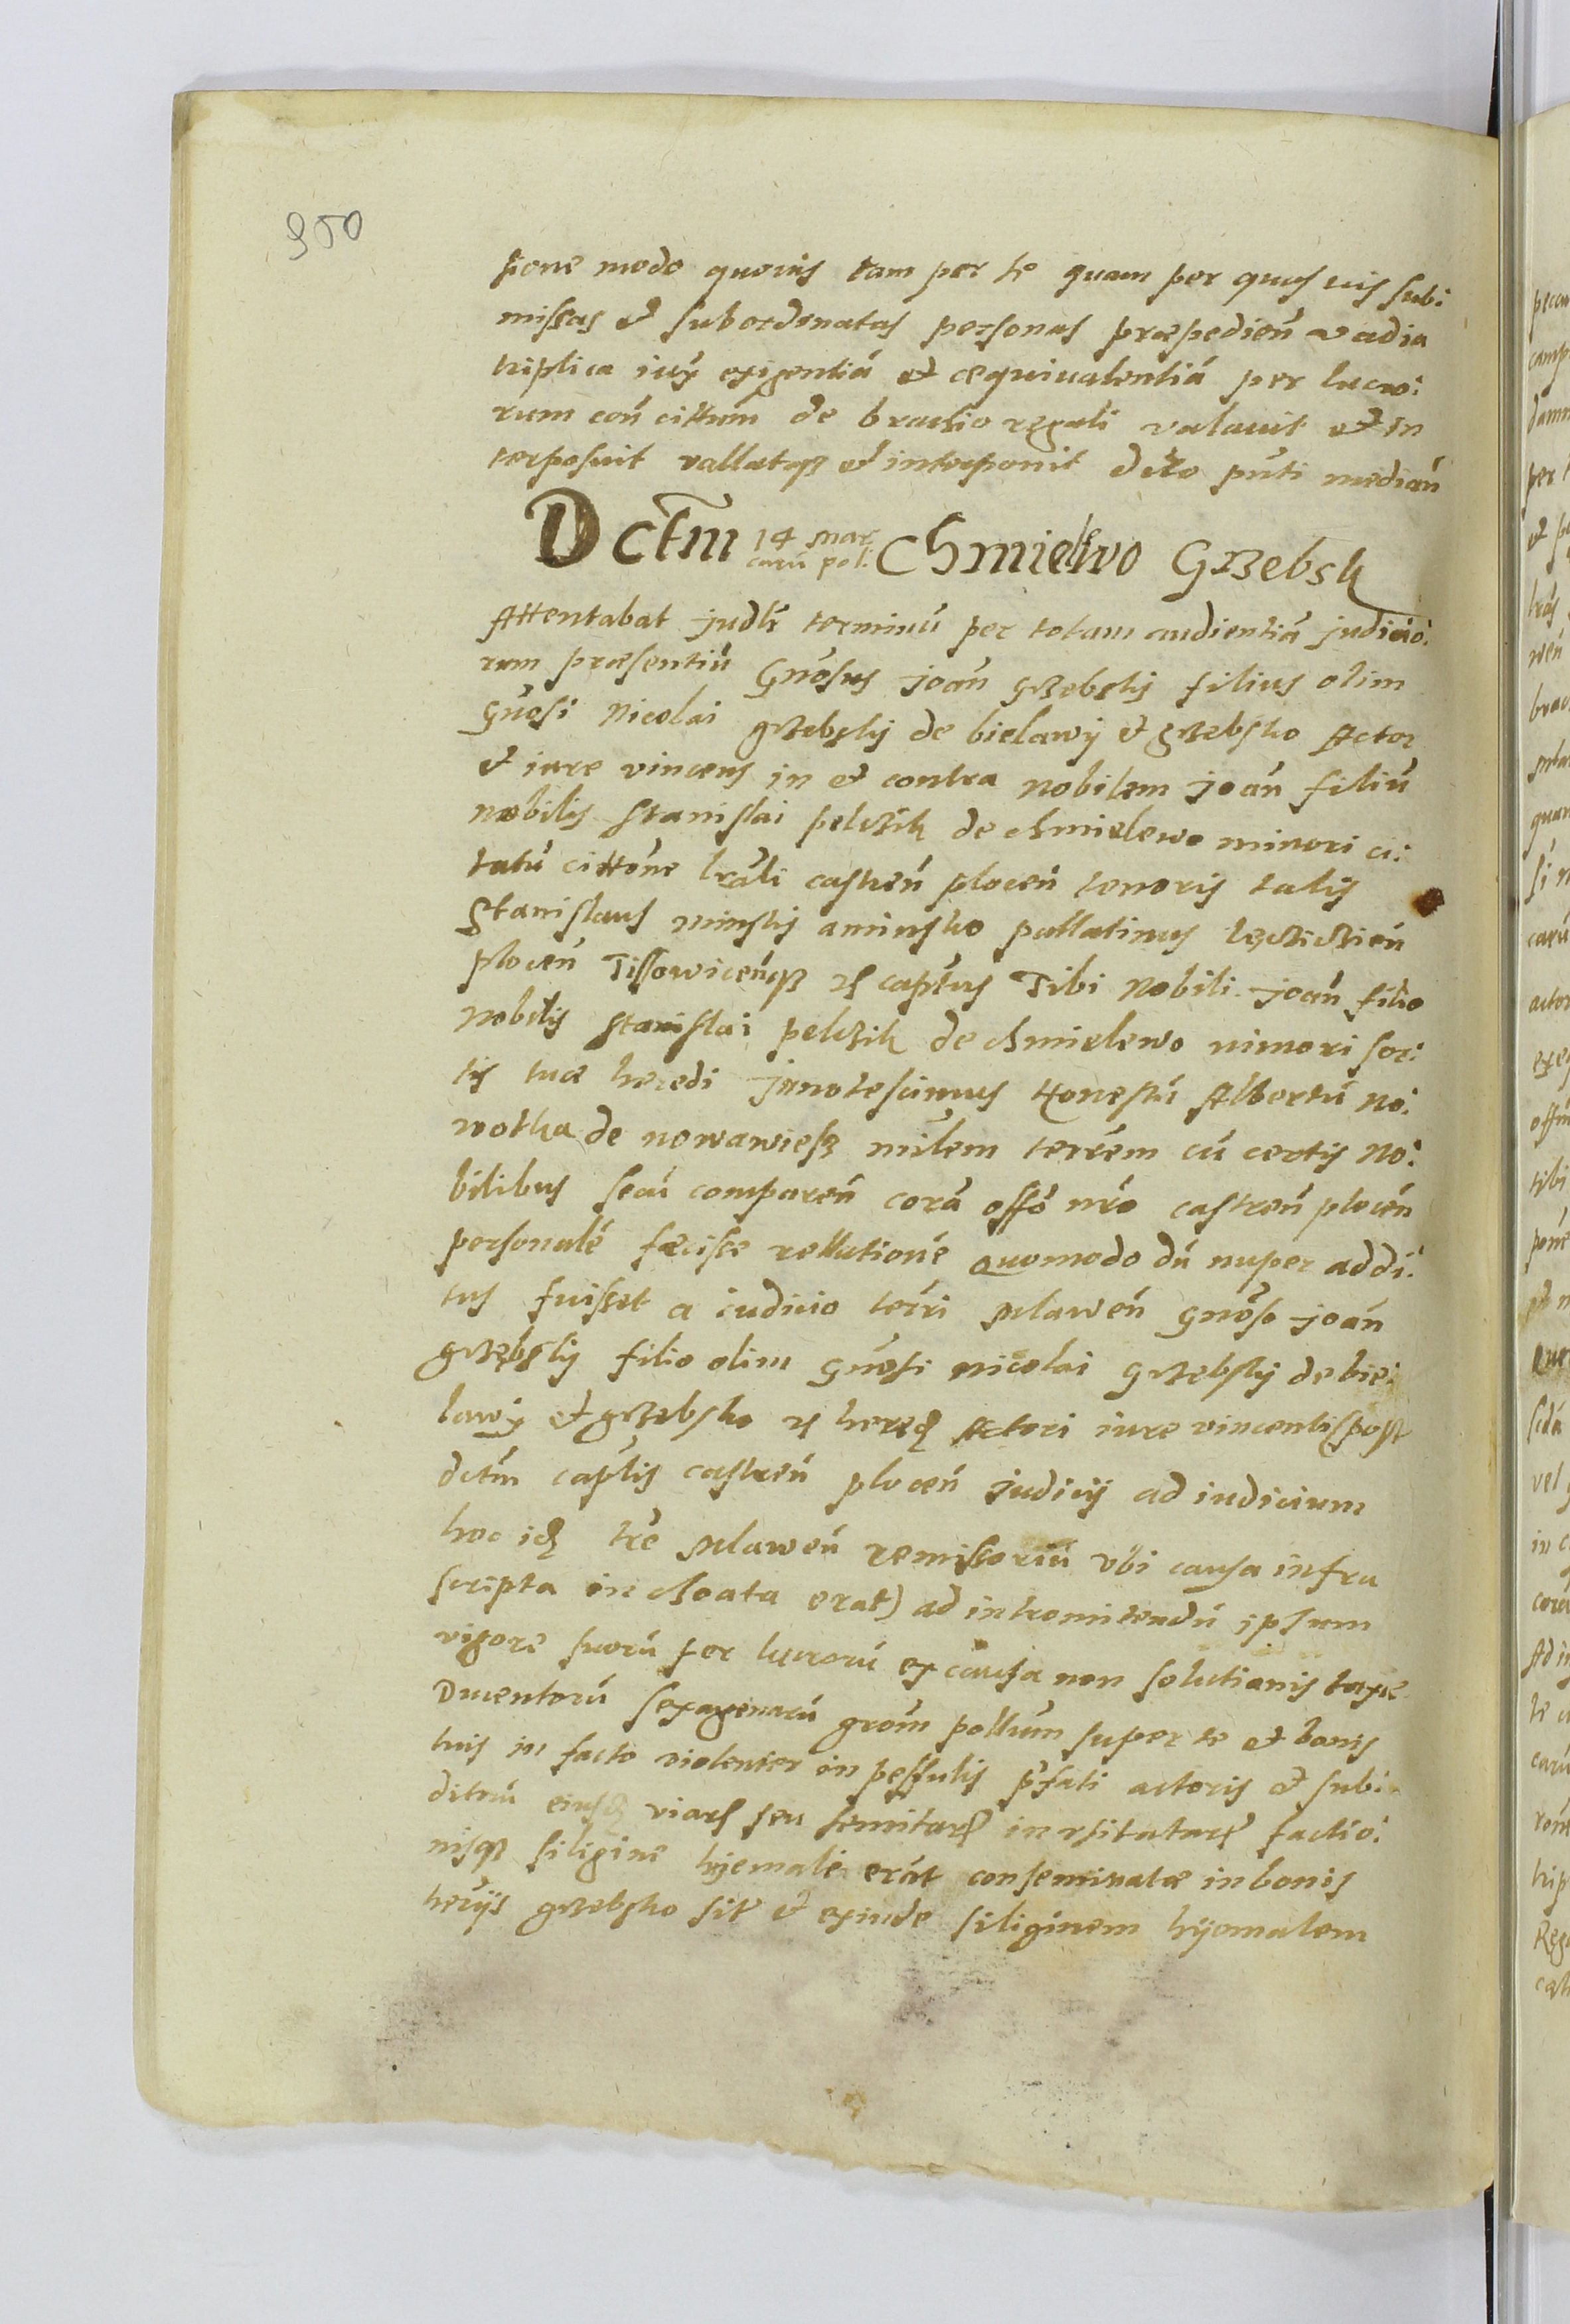 950
sione modo quovis tam per te quam per quos vis sub:
missas et subordinatas personas præpedień vadia
triplica iux exigentiá et æquivalentiá per lucro:
rum coń cittum de brachio regali valavit et in
terposuit vallatqз et interponit dcto pńti mediań
Dctm 14 mar
carú pol: Chmielewo Grzebsk
Attentabat judlr terminú per totam audientiá judicio:
rum præsentiú Gnosus joań grzebskij filius olim
Gnosi Nicolai grzebskij de bielawij et grzebsko Actor
et iure vincens in et contra nobilem joań filiú
nobilis Stanislai pelczik de chmielewo minori ci:
tatú cittone lrali castreń ploceń tenoris talis
Stanislaus minskij aminsko pallatinus lęcziczień
ploceń Tissowiceńqз capteus Tibi Nobili joań filio
Nobilis Stanislai pelczik de chmielewo minori sor:
tis tuæ heredi jnnotescimus Honestú Albertú No:
wotka de nowawiesz milem terrem cú certis No:
bilibus secú compareń corá offo nro castreń ploceń
personalé fæcisse rellatione Quomodo dú nuper addi:
tus fuisset a iudicio terri Mlaweń Gnoso joań
grzębskij filio olim Gnosi nicolai grzębskij de bie:
lawij et grzębsko hered Actori iure vincenti (post
dctm captis castreń ploceń judicij ad iudicium
hoc id tre Mlaweń remissoriú ubi causa infra
scripta inchoata erat) ad intromitendú ipsum
vigore suorú ter lucrorú ex causa non solutionis taxæ
Ducentorú sexagenarú grom pollum super te et bonis
tuis in facto violenter in pessulis pfati actoris et subi
ditorú eiusd viar seu semitar inusitatar factio:
nisqз siligine hijemali erát conseminatæ in bonis
herijs grzebsko sit et exinde siliginem hijemalem